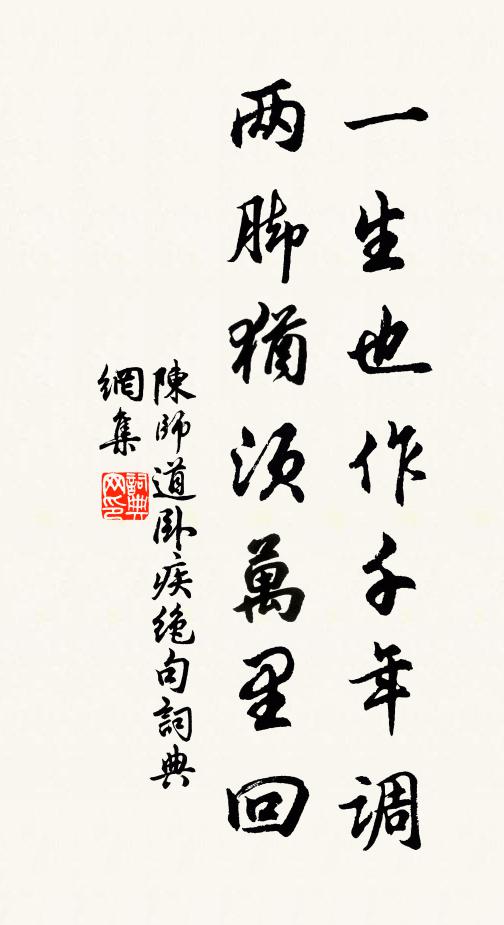 一生也作千年调
两脚猶须萬里回
陳師道卧疾绝句詞典
網集
詞典
网印